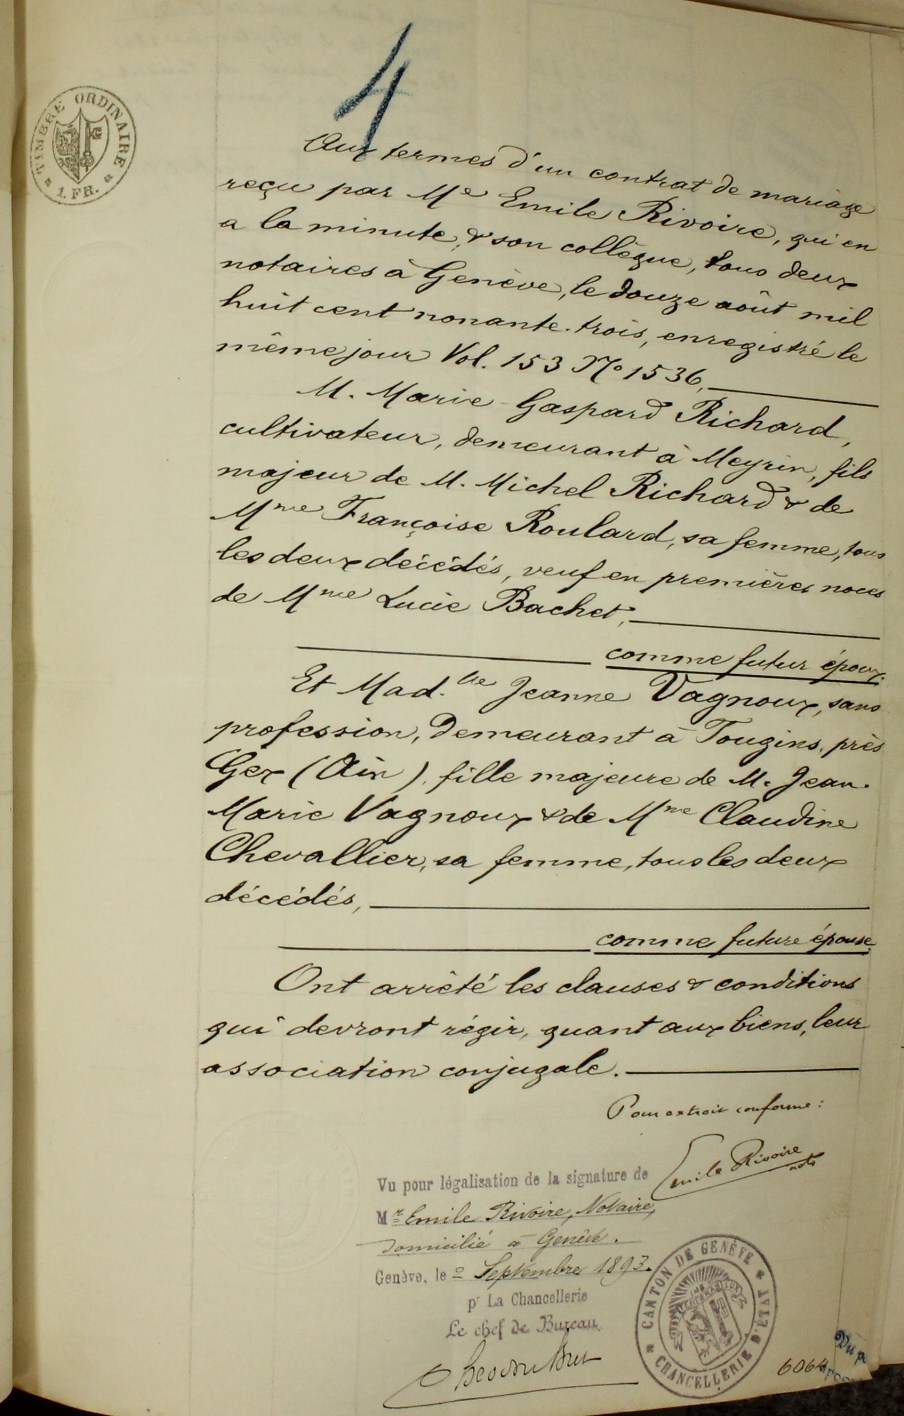 4
TIMBRE ORDINAIRE
1. FR.
Aux termes d'un contrat de mariage
reçu par Me Emile Rivoire, qui en
a la minute, & son collègue, tous deux
notaires à Genève, le douze août mil
huit cent nonante-trois, enregistré le
même jour Vol. 153 No 1536,
M. Marie-Gaspard Richard,
cultivateur, demeurant à Meyrin, fils
majeur de M. Michel Richard & de
Mme Françoise Roulard, sa femme, tous
les deux décédés, veuf en premières noces
de Mme Lucie Bachet,
comme futur époux.
Et Mad.lle Jeanne Vagnoux, sans
profession, demeurant à Tougins, près
Gex (Ain), fille majeure de M. Jean-
Marie Vagnoux & de Mme Claudine
Chevallier, sa femme, tous les deux
décédés,
comme future épouse.
Ont arrêté les clauses & conditions
qui devront régir, quant aux biens, leur
association conjugale.
Pour extrait conforme:
Emile Rivoire
not.
Vu pour légalisation de la signature de
Mr Emile Rivoire, Notaire,
domicilié à Genève.
Genève, le 2 Septembre 1893.
pr La Chancellerie
Le chef de Bureau
CANTON DE GENÈVE
CHANCELLERIE D'ETAT
6064
Vu p